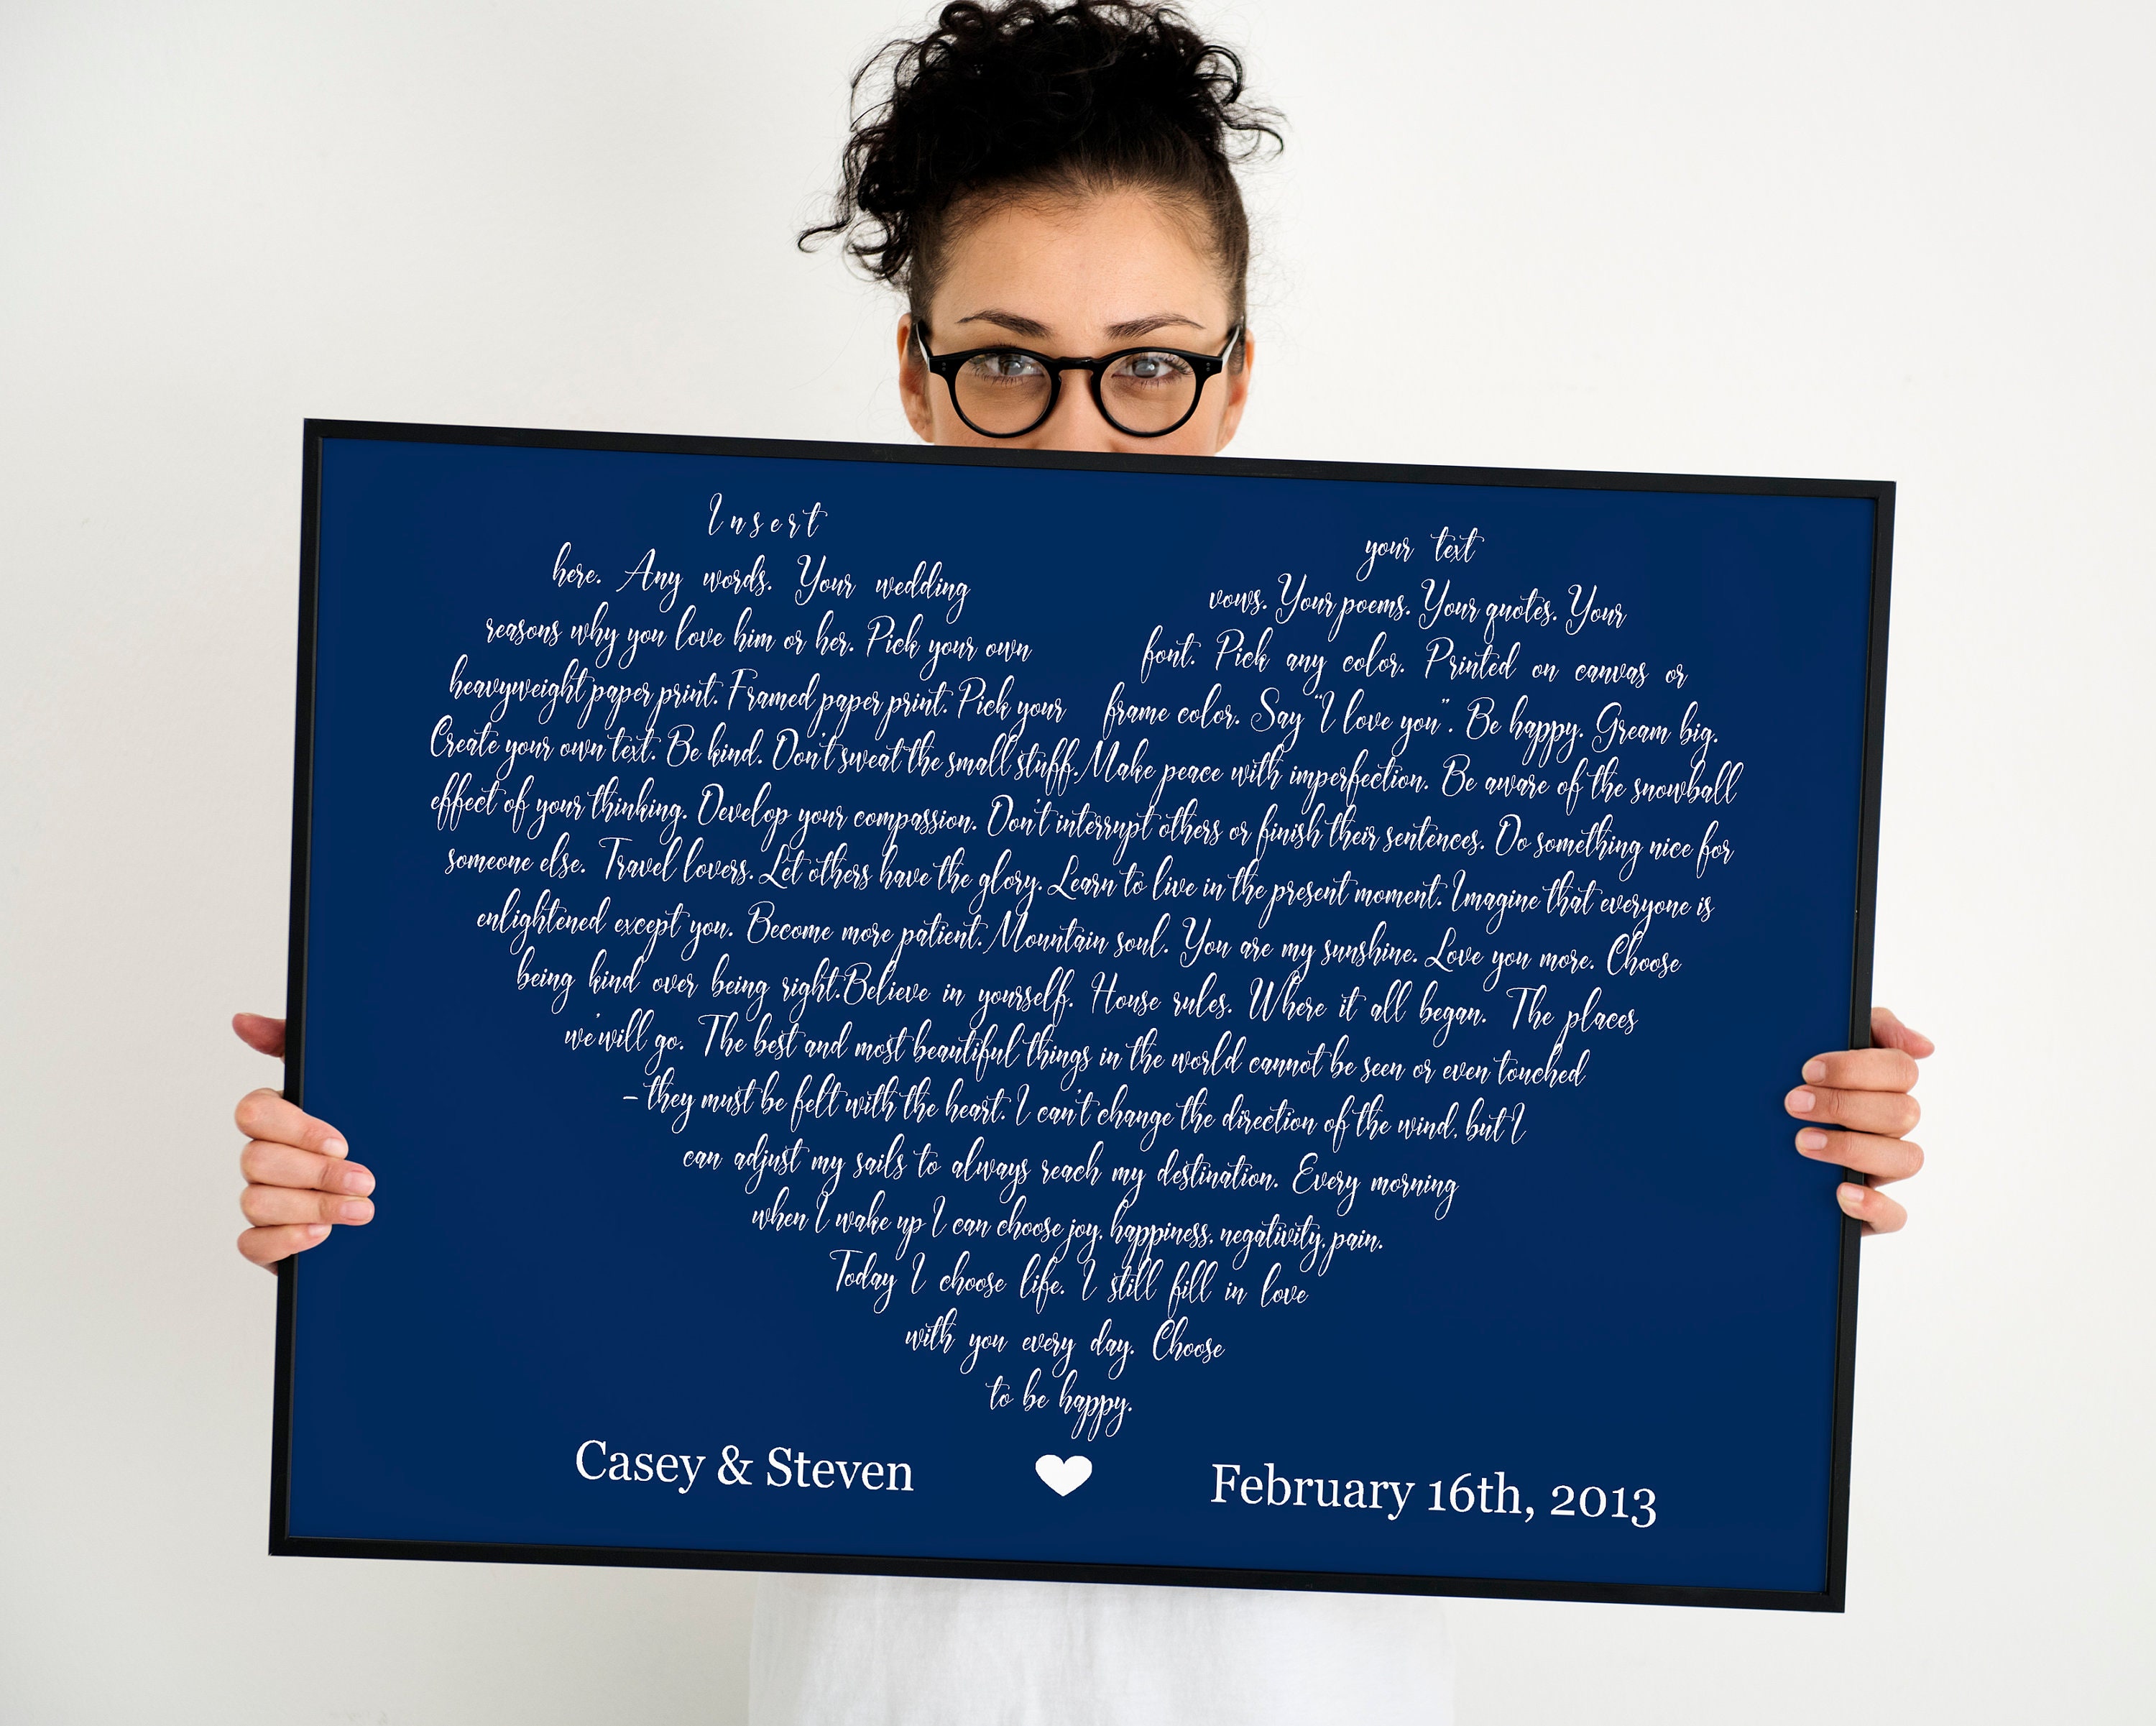 Insert your text
here. Any words. Your wedding vows. Your poems. Your quotes. Your
reasons why you love him or her. Pick your own font. Pick any color. Printed on canvas or
heavyweight paper print. Framed paper print. Pick your frame color. Say "I love you". Be happy. Gream big.
Create your own text. Be kind. Don't sweat the small stuff. Make peace with imperfection. Be aware of the snowball
effect of your thinking. Develop your compassion. Don't interrupt others or finish their sentences. Do something nice for
someone else. Travel lovers. Let others have the glory. Learn to live in the present moment. Imagine that everyone is
enlightened except you. Become more patient. Mountain soul. You are my sunshine. Love you more. Choose
being kind over being right.Believe in yourself. House rules. Where it all began. The places
we'will go. The best and most beautiful things in the world cannot be seen or even touched
- they must be felt with the heart. I can't change the direction of the wind, but I
can adjust my sails to always reach my destination. Every morning
when I wake up I can choose joy, happiness, negativity, pain.
Today I choose life. I still fill in love
with you every day. Choose
to be happy.
Casey & Steven February 16th, 2013